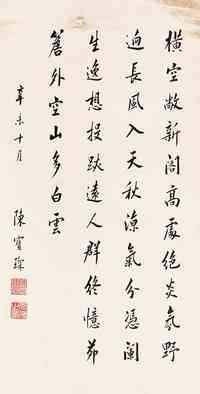 橫空敞新閣高處絕炎氛野
迥長風入天秋涼氣分憑闌
生逸想投跡遠人群終憶茆
簷外空山多白雲
辛未十月
陳寶琛